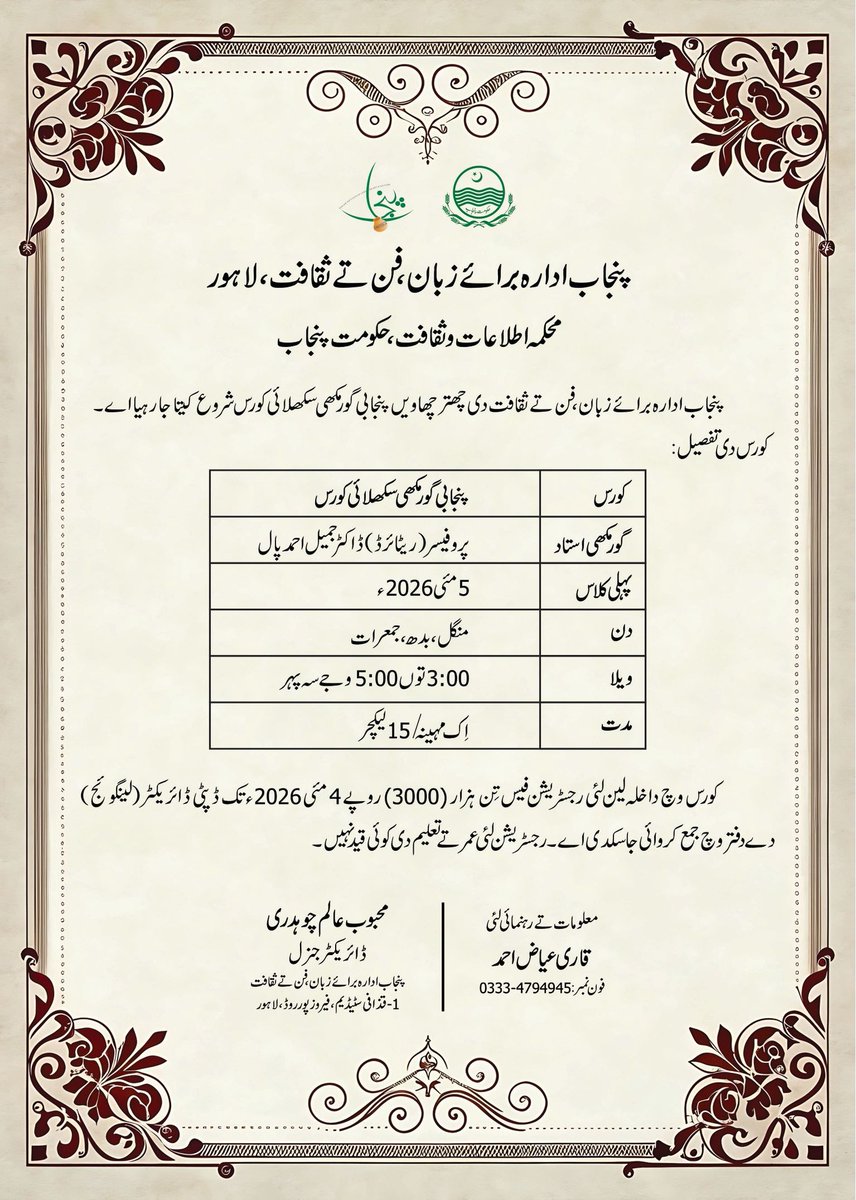 پنجاب ادارہ برائے زبان، فن تے ثقافت، لاہور
محکمہ اطلاعات و ثقافت، حکومت پنجاب
پنجاب ادارہ برائے زبان، فن تے ثقافت دی چھتر چھاویں پنجابی گورمکھی سکھلائی کورس شروع کیتا جا رہیا اے۔
کورس دی تفصیل:
کورس پنجابی گورمکھی سکھلائی کورس
گورمکھی استاد پروفیسر (ریٹائرڈ) ڈاکٹر جمیل احمد پال
پہلی کلاس 5 مئی 2026ء
دن منگل، بدھ، جمعرات
ویلا 3:00 توں 5:00 وجے سہ پہر
مدت اِک مہینہ/ 15 لیکچر
کورس وچ داخلہ لین لئی رجسٹریشن فیس تِن ہزار (3000) روپے 4 مئی 2026ء تک ڈپٹی ڈائریکٹر (لینگوئج)
دے دفتر وچ جمع کروائی جا سکدی اے۔ رجسٹریشن لئی عمر تے تعلیم دی کوئی قید نہیں۔
معلومات تے رہنمائی لئی
قاری عیاض احمد
فون نمبر: 0333-4794945
محبوب عالم چوہدری
ڈائریکٹر جنرل
پنجاب ادارہ برائے زبان، فن تے ثقافت
1- قذافی سٹیڈیم، فیروز پور روڈ، لاہور